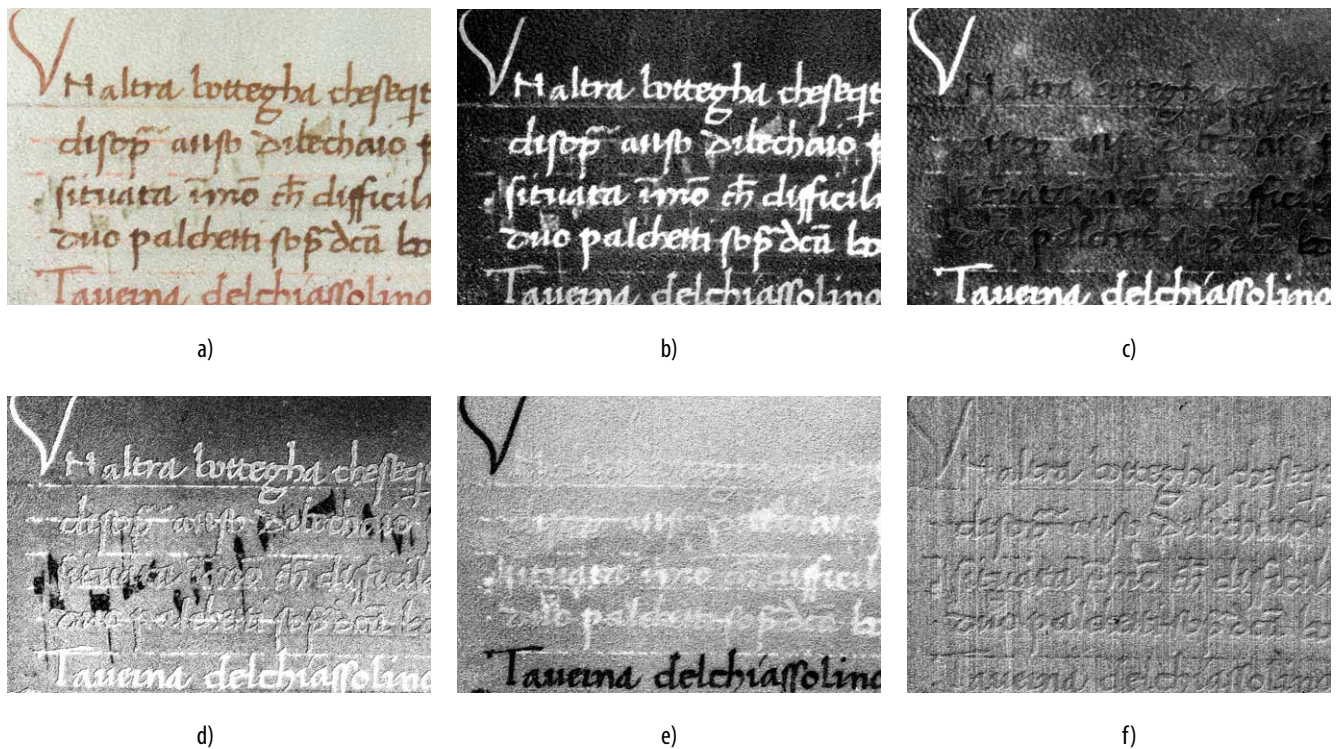 VN altra bottegha cheseqt
disop̄ auso dibechaio p
situata īmō ch̄ difficil
duo palchetti sop̄ dc̄a bo
Tauerna delchiassolino
a)
VN altra bottegha cheseqt
disop̄ auso dibechaio p
situata īmō ch̄ difficil
duo palchetti sop̄ dc̄a bo
Tauerna delchiassolino
b)
VN altra bottegha cheseqt
disop̄ auso
situata īmō ch̄ difficil
duo palchetti sop̄ dc̄a bo
Tauerna delchiassolino
c)
VN altra bottegha cheseqt
disop̄ auso dibechaio
situata īmō ch̄ difficil
duo palchetti sop̄ dc̄a bo
Tauerna delchiassolino
d)
V
situata īmō ch̄ difficil
duo palchetti sop̄ dc̄a bo
Tauerna delchiassolino
e)
VN altra bottegha cheseqt
disop̄ auso dibechaio
situata īmō ch̄ difficil
duo palchetti sop̄ dc̄a bo
Tauerna delchiassolino
f)